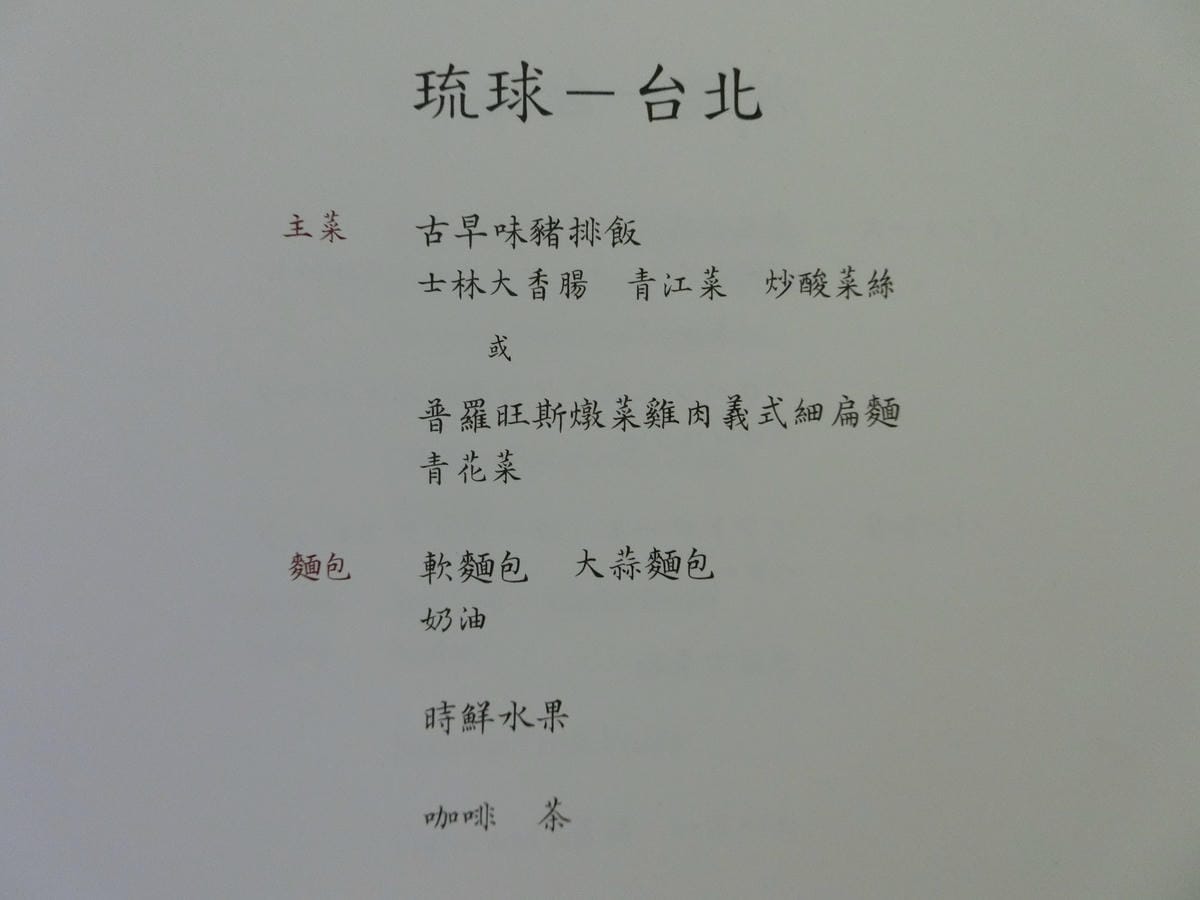 琉球－台北
主菜 古早味豬排飯
士林大香腸 青江菜 炒酸菜絲
或
普羅旺斯燉菜雞肉義式細扁麵
青花菜
麵包 軟麵包 大蒜麵包
奶油
時鮮水果
咖啡 茶